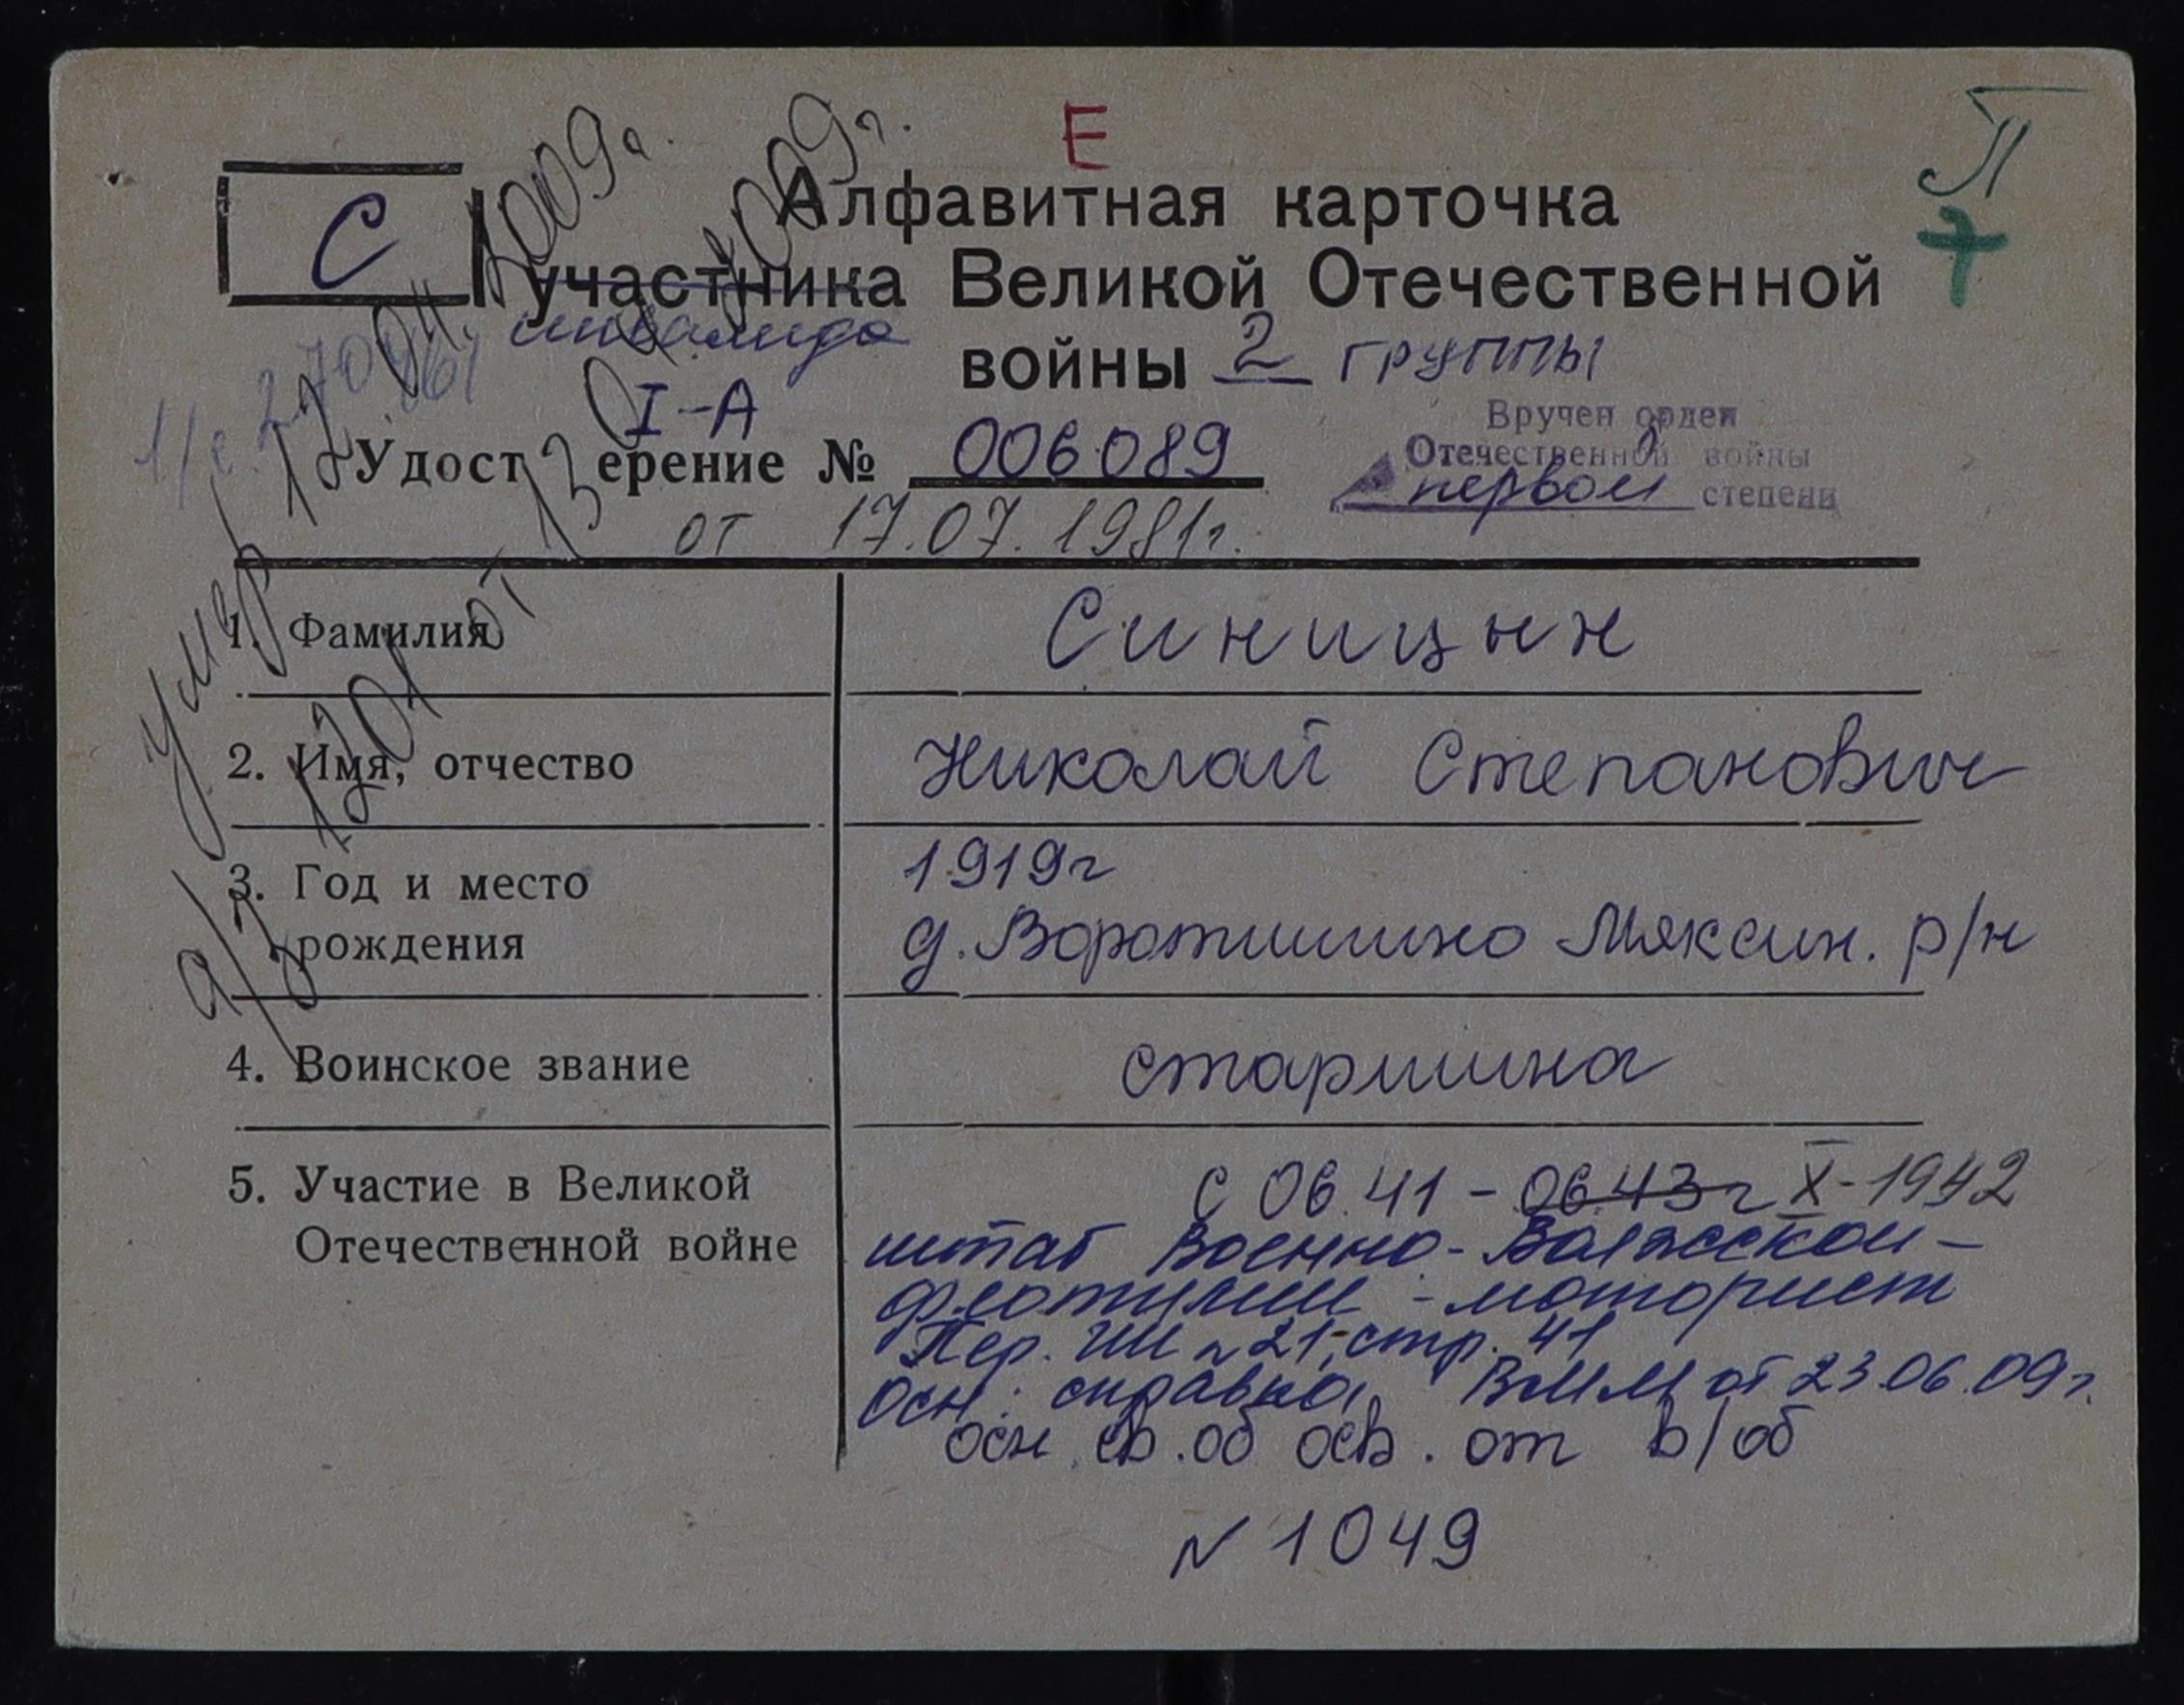 Е
П
7
С
Алфавитная карточка
участника Великой Отечественной
инвалида
войны 2 группы
I-А
Вручен орден
Отечественной войны
первой степени
Удостоверение № 006089
от 17.07.1981г.
умер 12.04.2009г.
1. Фамилия
Синицын
2. Имя, отчество
Николай Степанович
3. Год и место
рождения
1919г
д. Воротишино Мяксин. р/н
4. Воинское звание
старшина
5. Участие в Великой
Отечественной войне
с 06.41 - 06.43г X-1942
штаб Военно-Волжской-
флотилии - моторист
Пер. ИИ №21, стр. 41
осн: справка, ВММ от 23.06.09г.
осн. св. об осв. от в/об
N 1049